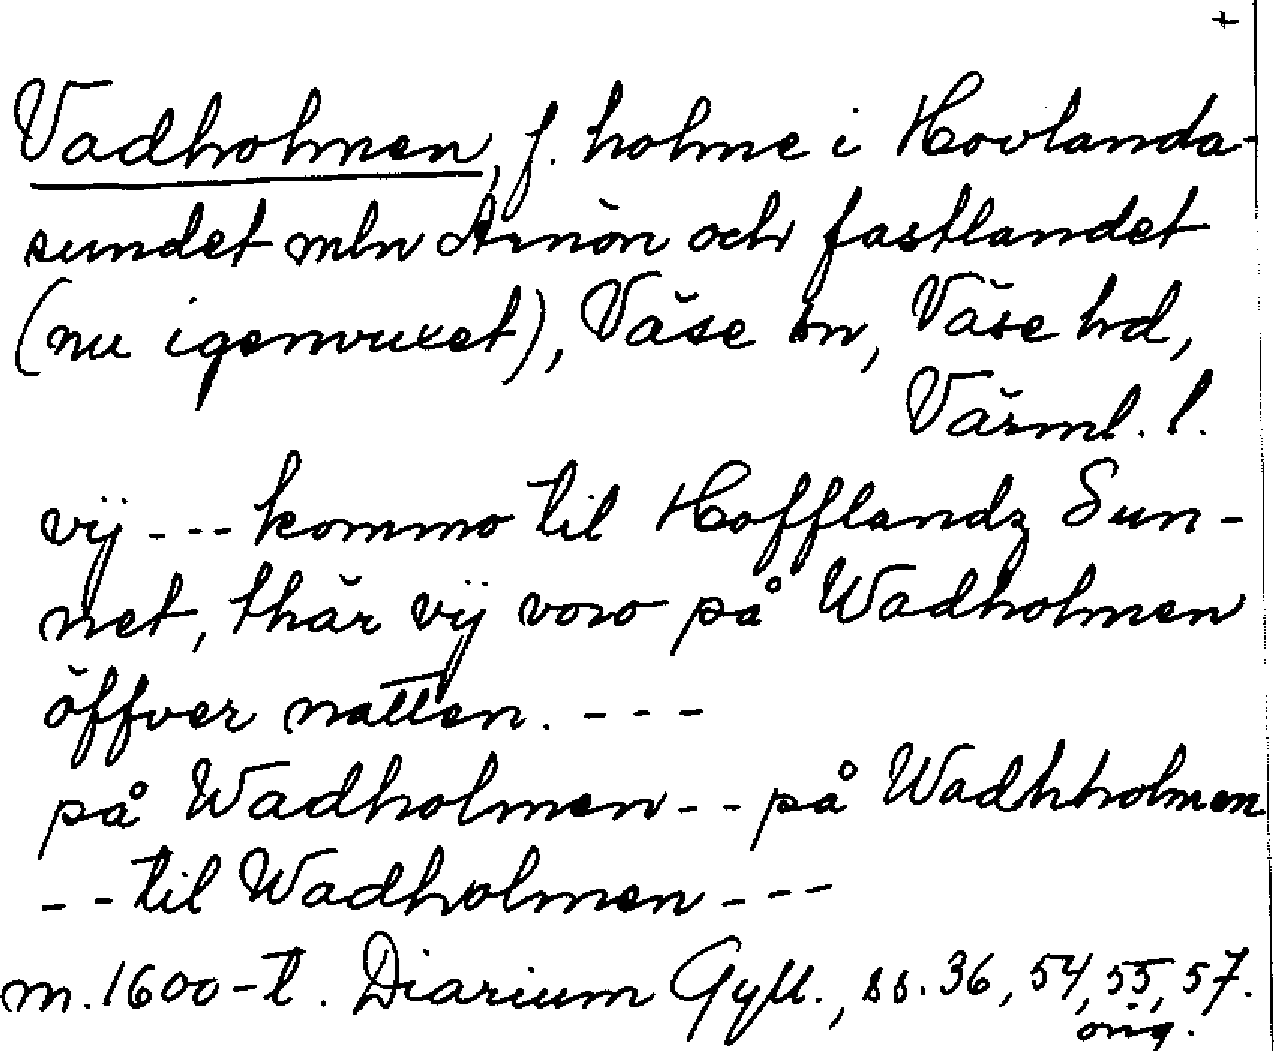 +
Vadholmen, f. holme i Hovlanda-
sundet mln Arnön och fastlandet
(nu igenvuxet), Väse sn, Väse hd,
Värml. l.
vij - - - kommo til Hofflandz Sun-
net, thär vij voro på Wadholmen
öffver natten. - - -
på Wadholmen - - på Wadhholmen
- - til Wadholmen - - -
m. 1600-t. Diarium Gyll., ss. 36, 54, 55, 57.
orig.